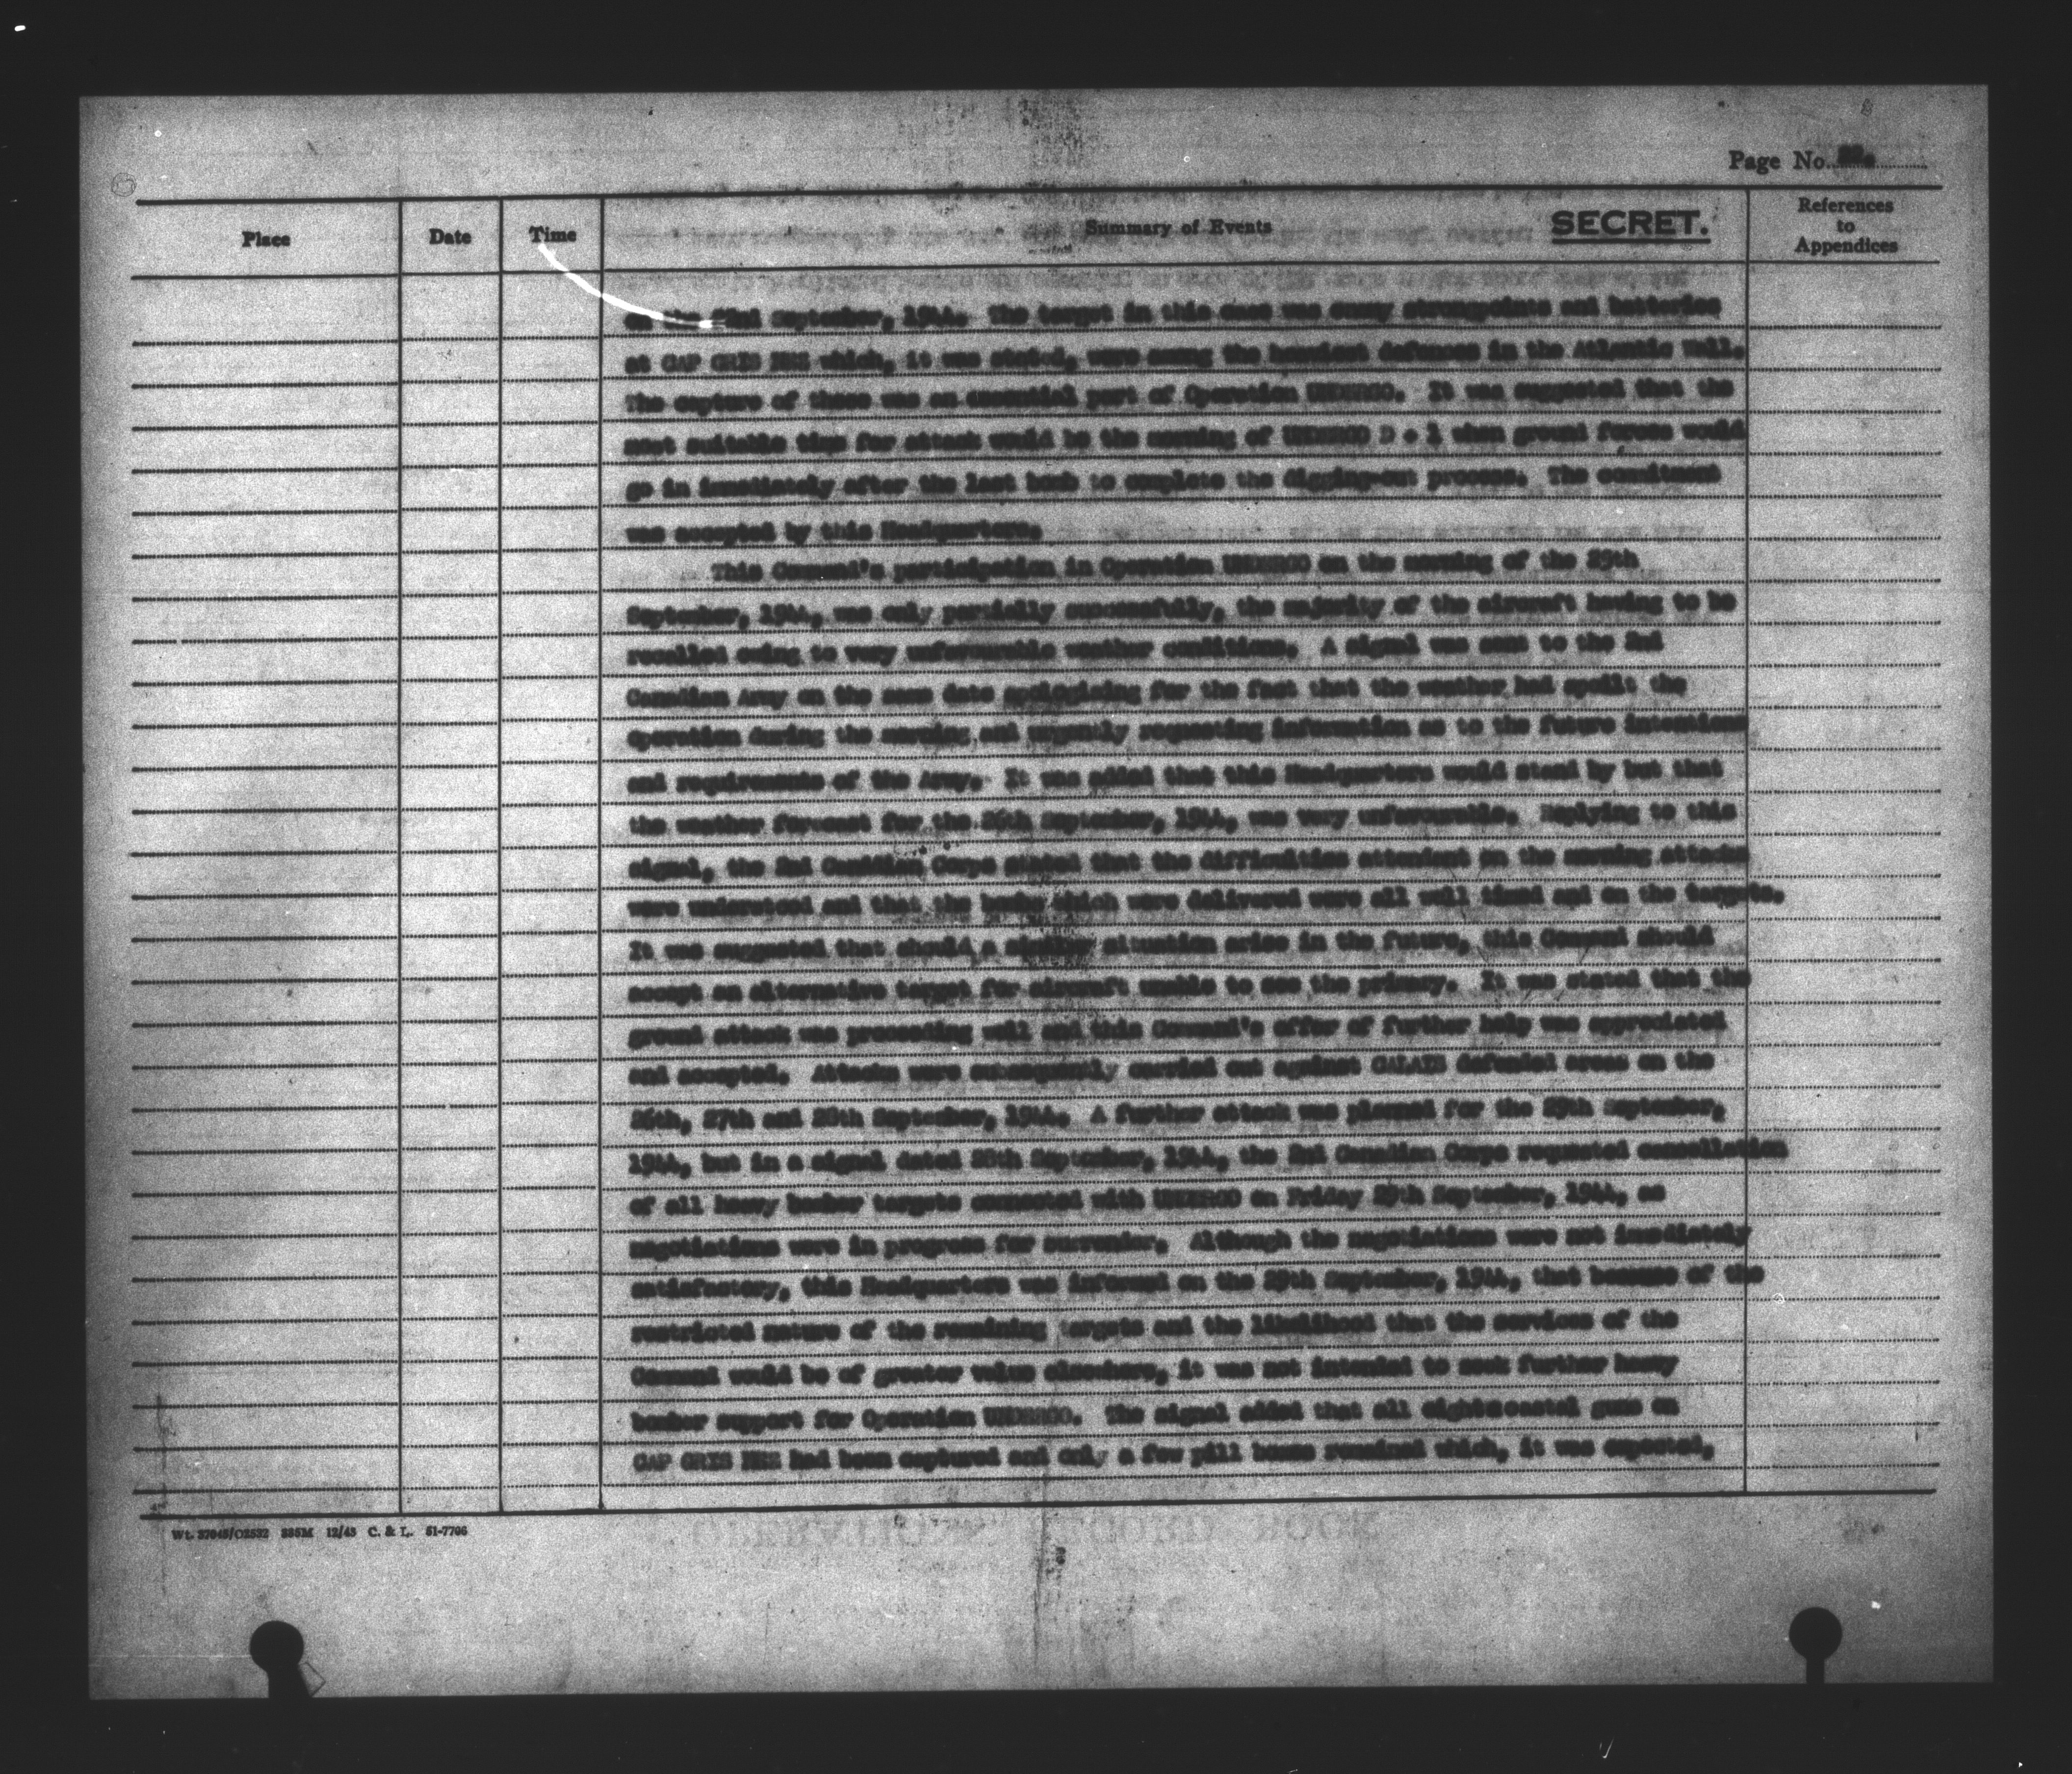 Page No.
Place Date Time Summary of Events SECRET. References to Appendices
on the 22nd September, 1944. The target in this case was enemy strongpoints and batteries
at CAP GRIS NEZ which, it was stated, were among the heaviest defences in the Atlantic Wall.
The capture of these was an essential part of Operation UNDERGO. It was suggested that the
most suitable time for attack would be the morning of UNDERGO D + 1 when ground forces would
go in immediately after the last bomb to complete the digging-out process. The commitment
was accepted by this Headquarters.
This Command's participation in Operation UNDERGO on the morning of the 25th
September, 1944, was only partially successfully, the majority of the aircraft having to be
recalled owing to very unfavourable weather conditions. A signal was sent to the 2nd
Canadian Army on the same date apologising for the fact that the weather had spoilt the
operation during the morning and urgently requesting information as to the future intentions
and requirements of the Army. It was added that this Headquarters would stand by but that
the weather forecast for the 26th September, 1944, was very unfavourable. Replying to this
signal, the 2nd Canadian Corps stated that the difficulties attendant on the morning attacks
were understood and that the bombs which were delivered were all well timed and on the targets.
It was suggested that should a similar situation arise in the future, this Command should
accept an alternative target for aircraft unable to see the primary. It was stated that the
ground attack was proceeding well and this Command's offer of further help was appreciated
and accepted. Attacks were subsequently carried out against CALAIS defended areas on the
26th, 27th and 28th September, 1944. A further attack was planned for the 29th September,
1944, but in a signal dated 28th September, 1944, the 2nd Canadian Corps requested cancellation
of all heavy bomber targets connected with UNDERGO on Friday 29th September, 1944, as
negotiations were in progress for surrender. Although the negotiations were not immediately
satisfactory, this Headquarters was informed on the 29th September, 1944, that because of the
restricted nature of the remaining targets and the likelihood that the services of the
Command would be of greater value elsewhere, it was not intended to seek further heavy
bomber support for Operation UNDERGO. The signal added that all eight coastal guns on
CAP GRIS NEZ had been captured and only a few pill boxes remained which, it was expected,
Wt. 37045/O2532 885M 12/43 C. & L. 51-7706